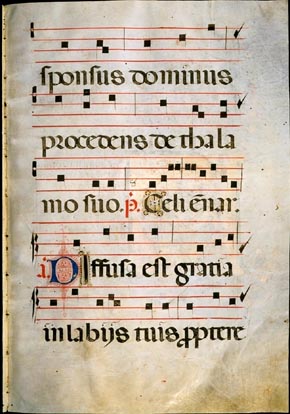 sponsus dominus
procedens de thala
mo suo. p̄. Celi enar.
a. Diffusa est gratia
in labijs tuis ꝓpptere